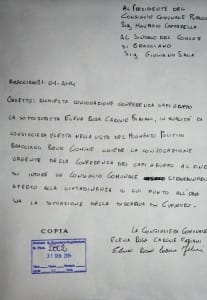 AL PRESIDENTE DEL
CONSIGLIO COMUNALE
SIG. MAURIZIO CAPPARELLA
AL SINDACO DEL COMUNE
DI BRACCIANO
SIG. GIULIANO SALA
BRACCIANO 31-01-2014
OGGETTO: RICHIESTA CONVOCAZIONE CONFERENZA CAPI GRUPPO
LA SOTTOSCRITTA ELENA ROSA CARONE FABIANI, IN QUALITÀ DI
CONSIGLIERA ELETTA NELLA LISTA DEL MOVIMENTO POLITICO
BRACCIANO BENE COMUNE CHIEDE LA CONVOCAZIONE
URGENTE DELLA CONFERENZA DEI CAPI GRUPPO AL FINE
DI INDIRE UN CONSIGLIO COMUNALE
APERTO ALLA CITTADINANZA IL CUI PUNTO ALL'ODG
SIA LA SITUAZIONE DELLA DISCARICA DI CUPINORO.
COPIA
31 GEN 2014
LA CONSIGLIERA COMUNALE
ELENA ROSA CARONE FABIANI
Elena Rosa Carone Fabiani